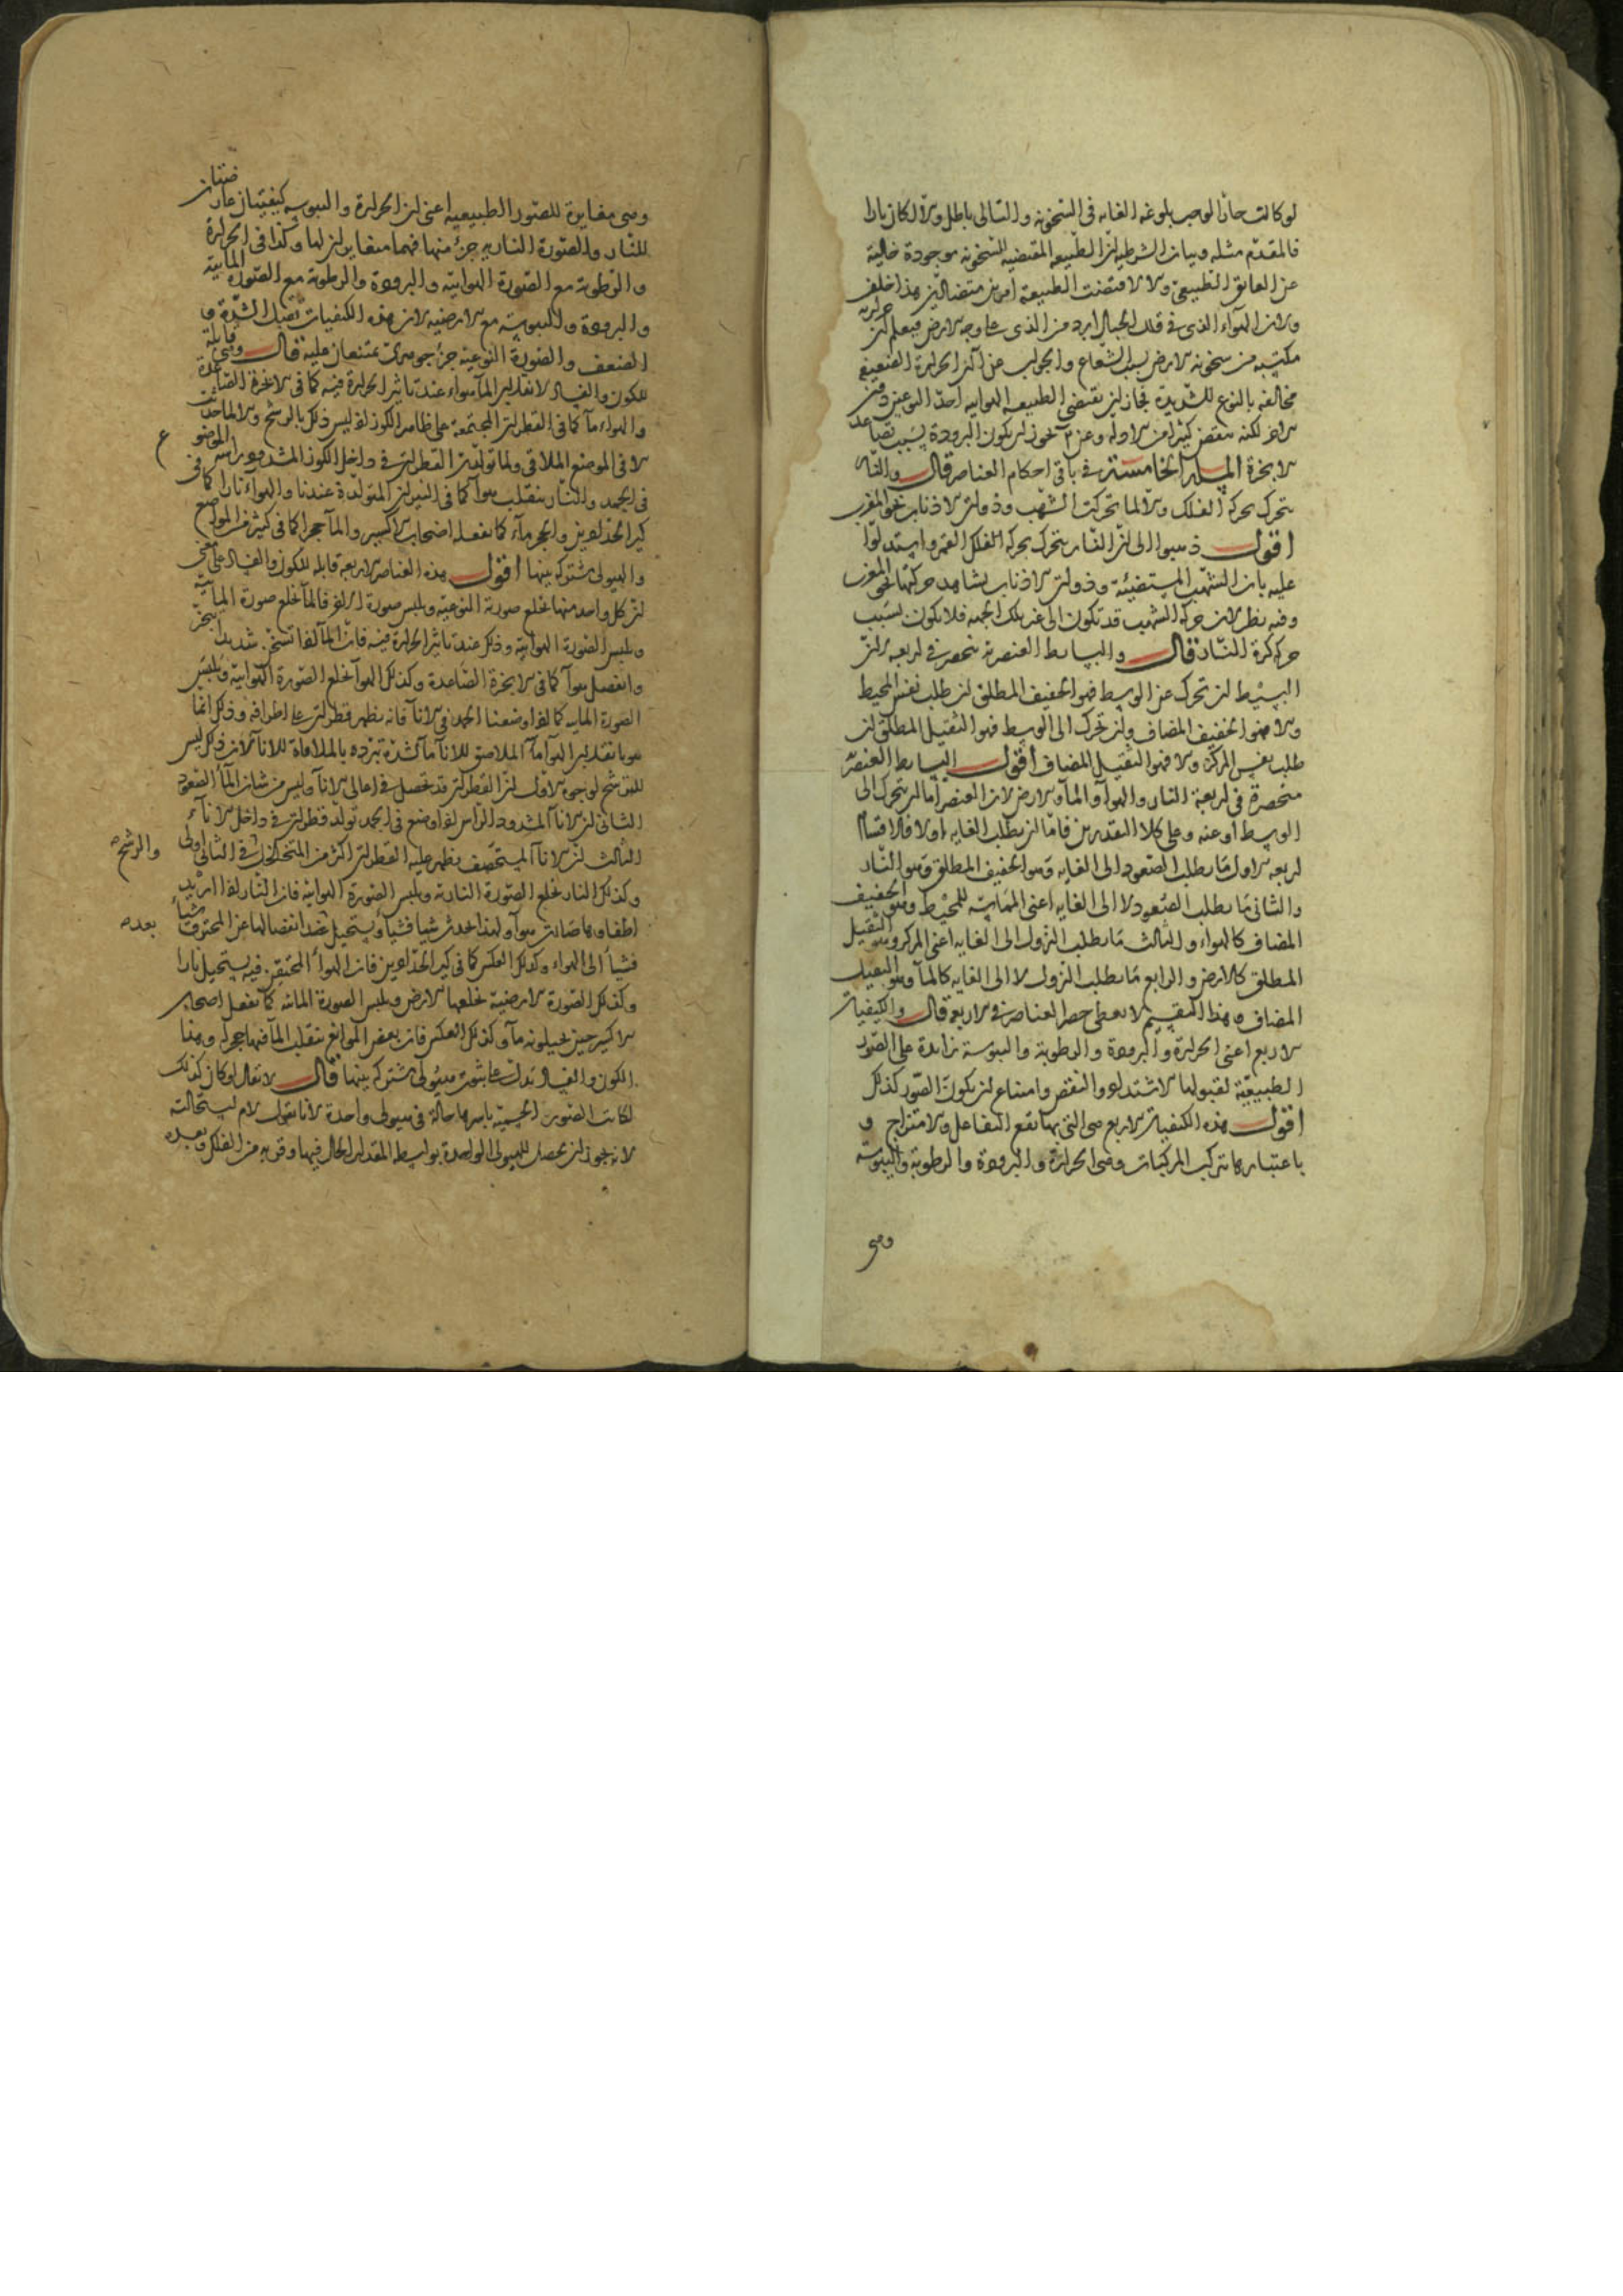 لو كانت حارّا لوجب بلوغه الغاية فى السخونة والتالى باطل والا لكان نارا
فالمقدّم مثله وبيان الشرطية انّ الطبيعة المقتضية للسخونة موجودة خالية
عن العائق الطبيعى والا لاقتضت الطبيعة امرين متضادين هذا خلف
ولان الهوآء الذى فى قلل الجبال ابرد من الذى على وجه الارض فيعلم ان حرارته
مكتسبة من سخونة الارض بسبب الشعاع والجواب عن آ ان الحرارة الضعيفة
مخالفة بالنوع للشديدة فجاز ان تقتضى الطبيعة الهوائية احد النوعين دون
الاخر لكنه ينقص كثيرا من الادلة وعن ب نجوز ان يكون البرودة بسبب تصاعد
الابخرة المسئلة الخامسة فى باقى احكام العناصر قال والنار
تتحرك بحركة الفلك والا لما تحركت الشهب وذوات الاذناب نحو المغرب
اقول ذهبوا الى انّ النّار يتحرك بحركة الفلك القمر واستدلّوا
عليه بان الشهب المستضيئة وذوات الاذناب يشاهد حركتها نحو المغرب
وفيه نظر لان حركة الشهب قد تكون الى غير تلك الجهة فلا يكون بسبب
حركة كرة النّار قال والبسائط العنصرية تنحصر فى اربعة لانّ
البسيط ان تحرك عن الوسط فهو الخفيف المطلق ان طلب نفس المحيط
والا فهو الخفيف المضاف وان تحرك الى الوسط فهو الثقيل المطلق ان
طلب نفس المركز والا فهو الثقيل المضاف اقول البسائط العنصرية
منحصرة فى اربعة النار والهوآ والمآ والارض لان العنصر اما ان يتحرك الى
الوسط او عنه وعلى كلا التقديرين فامّا ان يطلب الغاية اولا فالاقسام
اربعة الاول ما يطلب الصّعود الى الغاية وهو الخفيف المطلق وهو النّار
والثانى ما يطلب الصّعود لا الى الغاية اعنى المماسّة للمحيط وهو الخفيف
المضاف كالهواء والثالث ما يطلب النزول الى الغاية اعنى المركز وهو الثقيل
المطلق كالارض والرابع ما يطلب النزول لا الى الغاية كالمآ وهو الثقيل
المضاف وهذا التقسيم لا يعطى حصر العناصر فى الاربعة قال والكيفيات
الاربع اعنى الحرارة والبرودة والرطوبة واليبوسة زائدة على الصّور
الطبيعيّة لقبولها الاشتداد والنقص وامتناع ان يكون الصّور كذلك
اقول هذه الكيفيات الاربع هى التى بها تقع التفاعل والامتزاج و
باعتبارها تتركب المركبات وهى الحرارة والبرودة والرطوبة واليبوسة
وهى
وهى مغايرة للصّور الطبيعية اعنى ان الحرارة واليبوسة كيفيتان عارضتان
للنّار والصّورة الناريه جزء منها فهما متغايران لها وكذا فى الحرارة
والرّطوبة مع الصّورة الهوائية والبرودة والرطوبة مع الصّورة المائية
والبرودة واليبوسة مع الارضية لان هذه الكيفيات تقبل الشدّة و
الضعف والصّورة النوعية جزء جوهرى يمتنعان عليه قال وهى قابلة
للكون والفساد لانقلاب المآ هواء عند تاثير الحرارة فيه كما فى الابخرة الصّاعدة
والهواء مآ كما فى القطرات المجتمعة على ظاهر الكوز اذ ليس ذلك بالرشح والا لما حدثت
الا فى الموضع الملاقى ولما تولّدت القطرات فى داخل الكوز المشدود راسه الموضوع
فى الجمد والنّار تنقلب هوآ كما فى النيران المتولّدة عندنا والهوآء نارا كما فى
كير الحدّادين والحجر مآء كما يفعله اصحاب الاكسير والمآ حجرا كما فى كثير من المواضع
والهيولى مشتركة بينها اقول هذه العناصر الاربعة قابلة للكون والفساد على معنى
ان كل واحد منها يخلع صورته النوعيّة ويلبس صورة الاخر فالمآ يخلع صورة المائيّة
ويلبس الصّورة الهوائية وذلك عند تاثير الحرارة فيه فانّ المآ اذا تسخن شديدا تبخّر
وانفصل هوآ كما فى الابخرة الصّاعدة وكذلك الهوآ يخلع الصّورة الهوائية ويلبس
الصورة المائيه كما اذا وضعنا الجمد فى الانآ فانه يظهر قطرات على اطرافه وذلك انما
هو بانقلاب الهوآ مآ الملاصق للانآ مآ لشدة تبرّده بالملاقاة للانآ لان ذلك ليس
للترشح لوجوه الاول انّ القطرات قد تحصل فى اعالى الانآ وليس من شان المآ الصّعود
الثانى ان الانآ المشدود الرّاس اذا وضع فى الجمد تولّد قطرات فى داخل الانآء
الثالث انّ الانآ المستحصف يظهر عليه القطرات اكثر من المتخلخل فى الثانى اولى
والرشح
وكذلك النار يخلع الصّورة النارية ويلبس الصّورة الهوائية فان النار اذا اريد
اطفاوها صارت هوآ ولهذا يحدث شيا فشيأ ويستحيل عند انفصالها عن المحترق شيأ
بعده
فشيأ الى الهواء وكذلك العكس كما فى كير الحدّادين فان الهوآ المحتقن فيه يستحيل نارا
وكذلك الصّورة الارضية يخلعها الارض ويلبس الصورة المائية كما يفعل اصحاب
الاكسير حين يحيلونه مآ وكذلك العكس فان بعض المواضع ينقلب المآ فيها حجرا وهذا
الكون والفساد يدل على ثبوت هيولى مشتركة بينها قال لا يقال لو كان كذلك
لكانت الصّور الجسميّة باسرها حالة فى هيولى واحدة لانا نقول لا م استحالته
لانه يجوز ان يحصل للهيولى الواحدة بواسطة المقدار الحال فيها وقربه من الفلك وبعده